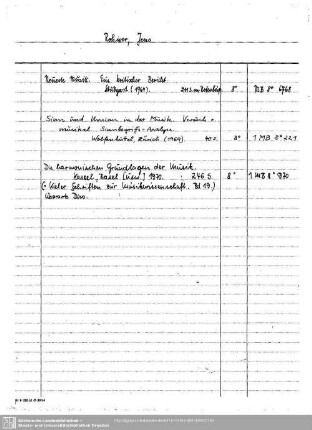 Rohwer, Jens
Neueste Musik. Ein kritischer Bericht.
Stuttgart (1964). 8° MB 8° 6968
Sinn und Unsinn in der Musik. Versuch e.
musikal. Sinnbegriffs-Analyse.
Wolfenbüttel, Zürich (1969). 8° 1 MB 8° 221
Die harmonischen Grundlagen der Musik.
Kassel, Basel [usw.] 1970. 246 S. 8° 1 MB 8° 970
(= Kieler Schriften zur Musikwissenschaft. Bd 19.)
Diss.
Sächsische Landesbibliothek -
Staats- und Universitätsbibliothek Dresden